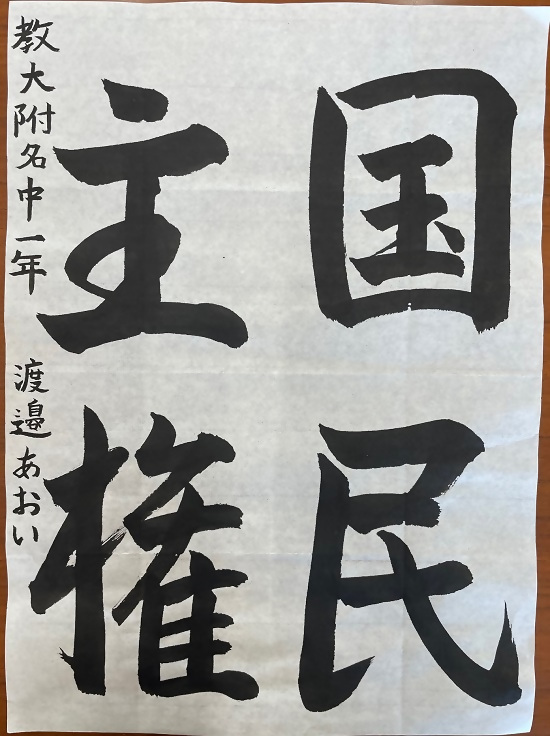 国民
主権
教大附名中一年 渡邉あおい